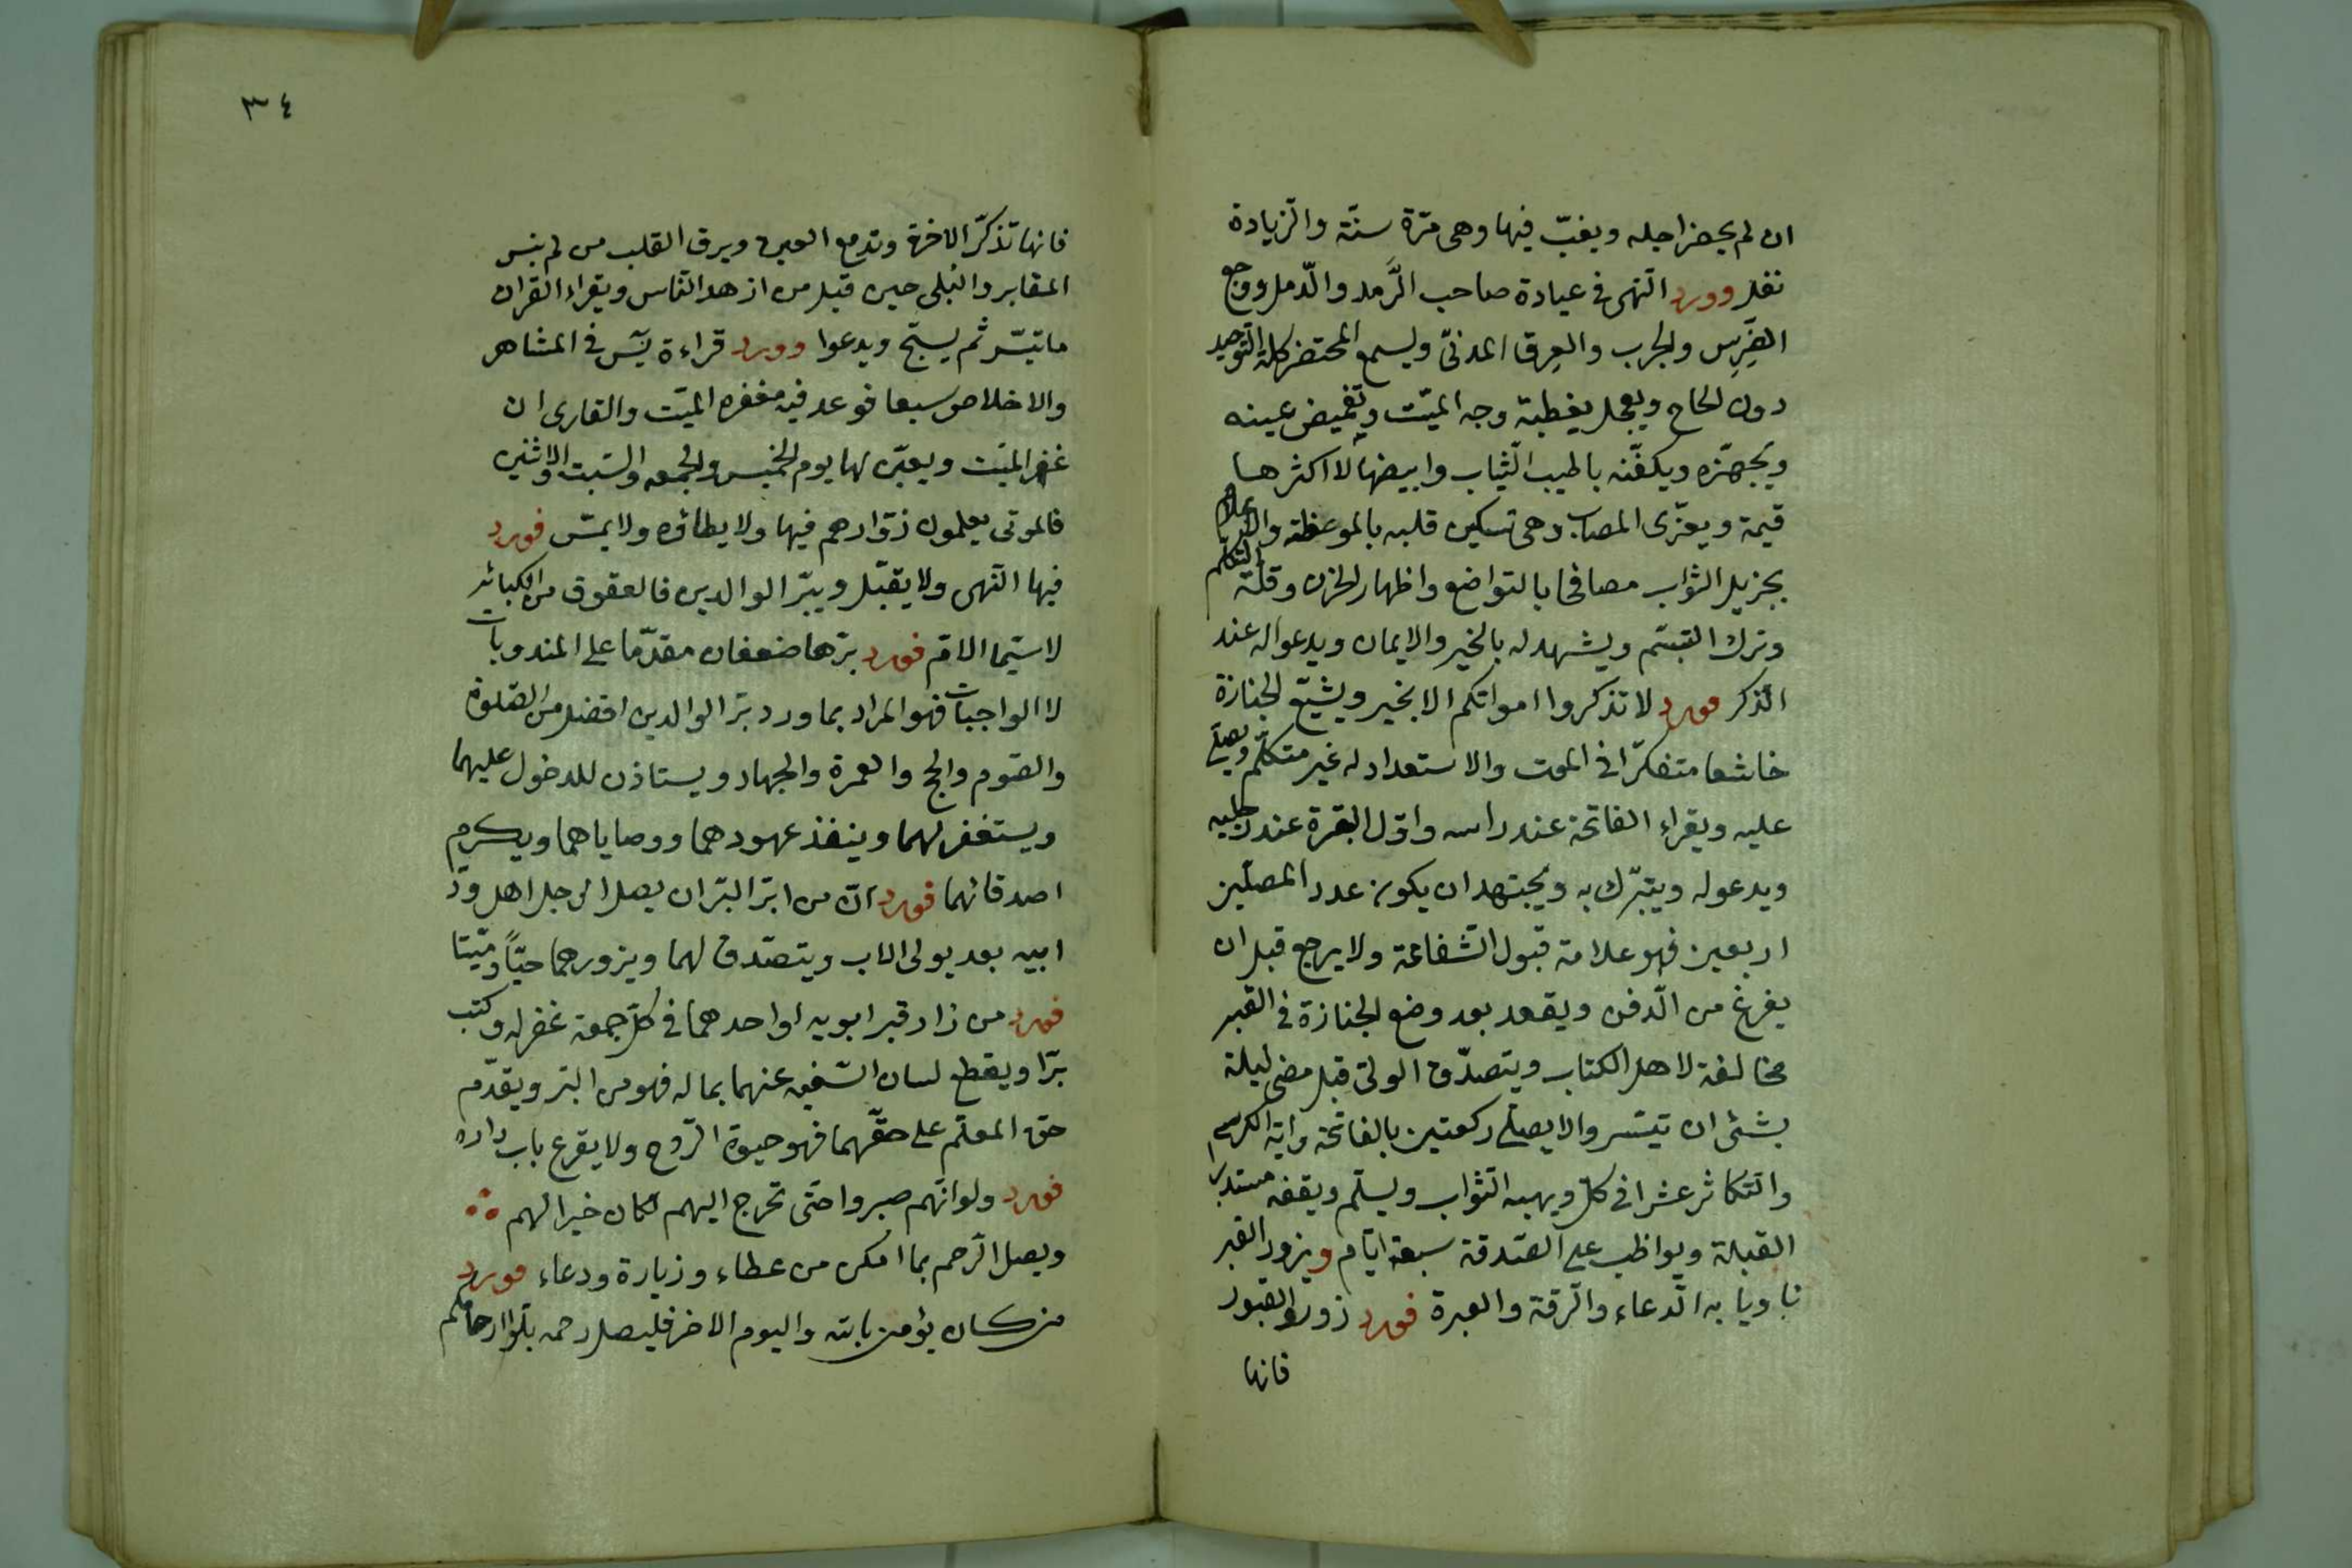 ان لم يحضر اجله ويغبّ فيها وهى مّرة سنّة والزيادة
نفل وورد النهى فى عيادة صاحب الرَّمد والدّمل ووجع
الضِرس والجرب والعِرق المدنىّ ويسمع المحتضر كلمة التوحيد
دون الحاح ويعجل بغطية وجه الميّت وتغميض عينه
ويجهّزه ويكفّنه باطيب الثياب وابيضها لا اكثرها
قيمة ويعزّى المصاب وهى تسكين قلبه بالموعظة والاعلام
بجزيل الثواب مصافحا بالتواضع واظهار الحزن وقلّة التكلم
وترك التبسّم ويشهد له بالخير والايمان ويدعوا له عند
الذكر فورد لا تذكروا امواتكم الا بخير ويشيّع الجنازة
خاشعا متفكّرا فى الموت والاستعداد له غير متكلّم ويصلّى
عليه ويقراء الفاتحة عند راسه واوّل البقرة عند رجليه
ويدعو له ويتبّرك به ويجتهد ان يكون عدد المصلّين
اربعين فهو علامة قبول الشفاعة ولا يرجع قبل ان
يفرغ من الدّفن ويقعد بعد وضع الجنازة فى القبر
مخالفة لاهل الكتاب ويتصدّق الولىّ قبل مضى ليلة
بشئ ان تيسّر والا يصلّى ركعتين بالفاتحة واية الكرسى
والتكاثر عشرا فى كلّ ويهبه الثواب ويسلّم ويقف مستدبر
القبلة ويواظب على الصّدقة سبعة ايّام ويزور القبر
ناويا به الدّعاء والرّقة والعبرة فورد زوروا القبور
فانها
٣٤
فانها تذكّر الاخرة وتدمع العين ويرق القلب من لم ينس
المقابر والبُلى حين قيل من ازهد النّاس ويقراء القران
ما تيسّر ثم يسبّح ويدعوا وورد قراءة يٓس فى المشاهر
والاخلاص سبعا فوعد فيه مغفرة الميّت والقارى ان
غفر الميّت ويعيّن لها يوم الخميس والجمعه والسّبت والاثنين
فالموتى يعلمون زوّارهم فيها ولا يطاؤه ولا يمسّ فورد
فيها النّهى ولا يقبّل ويبّر الوالدين فالعقوق من الكبائر
لا سيّما الامّ فورد برّها ضعفان مقدّما على المندوبات
لا الواجبات فهو المراد بما ورد برّ الوالدين افضل من الصّلوة
والصّوم والحج والعمرة والجهاد ويستاذن للدخول عليهما
ويستغفر لهما وينفذ عهودهما ووصاياهما ويكرم
اصدقائهما فورد انّ من ابرّ البّر ان يصل الرجل اهل ودّ
ابيه بعد يولى الاب ويتصدّق لهما ويزورهما حيّاً وميّتا
فورد من زار قبر ابويه او احدهما فى كلّ جمعة غفر له وكتب
برّا ويقطع لسان السّفيه عنهما بماله فهو من البّر ويقدّم
حق المعلّم على حقّهما فهو حيوة الرّوح ولا يقرع باب داره
فورد ولو انّهم صبروا حتّى تخرج اليهم لكان خيرا لهم
ويصل الرّحم بما امكن من عطاء وزيارة ودعاء فورد
من كان يؤمن بالله واليوم الاخر فليصل رحمه بلّوا ارحامكم